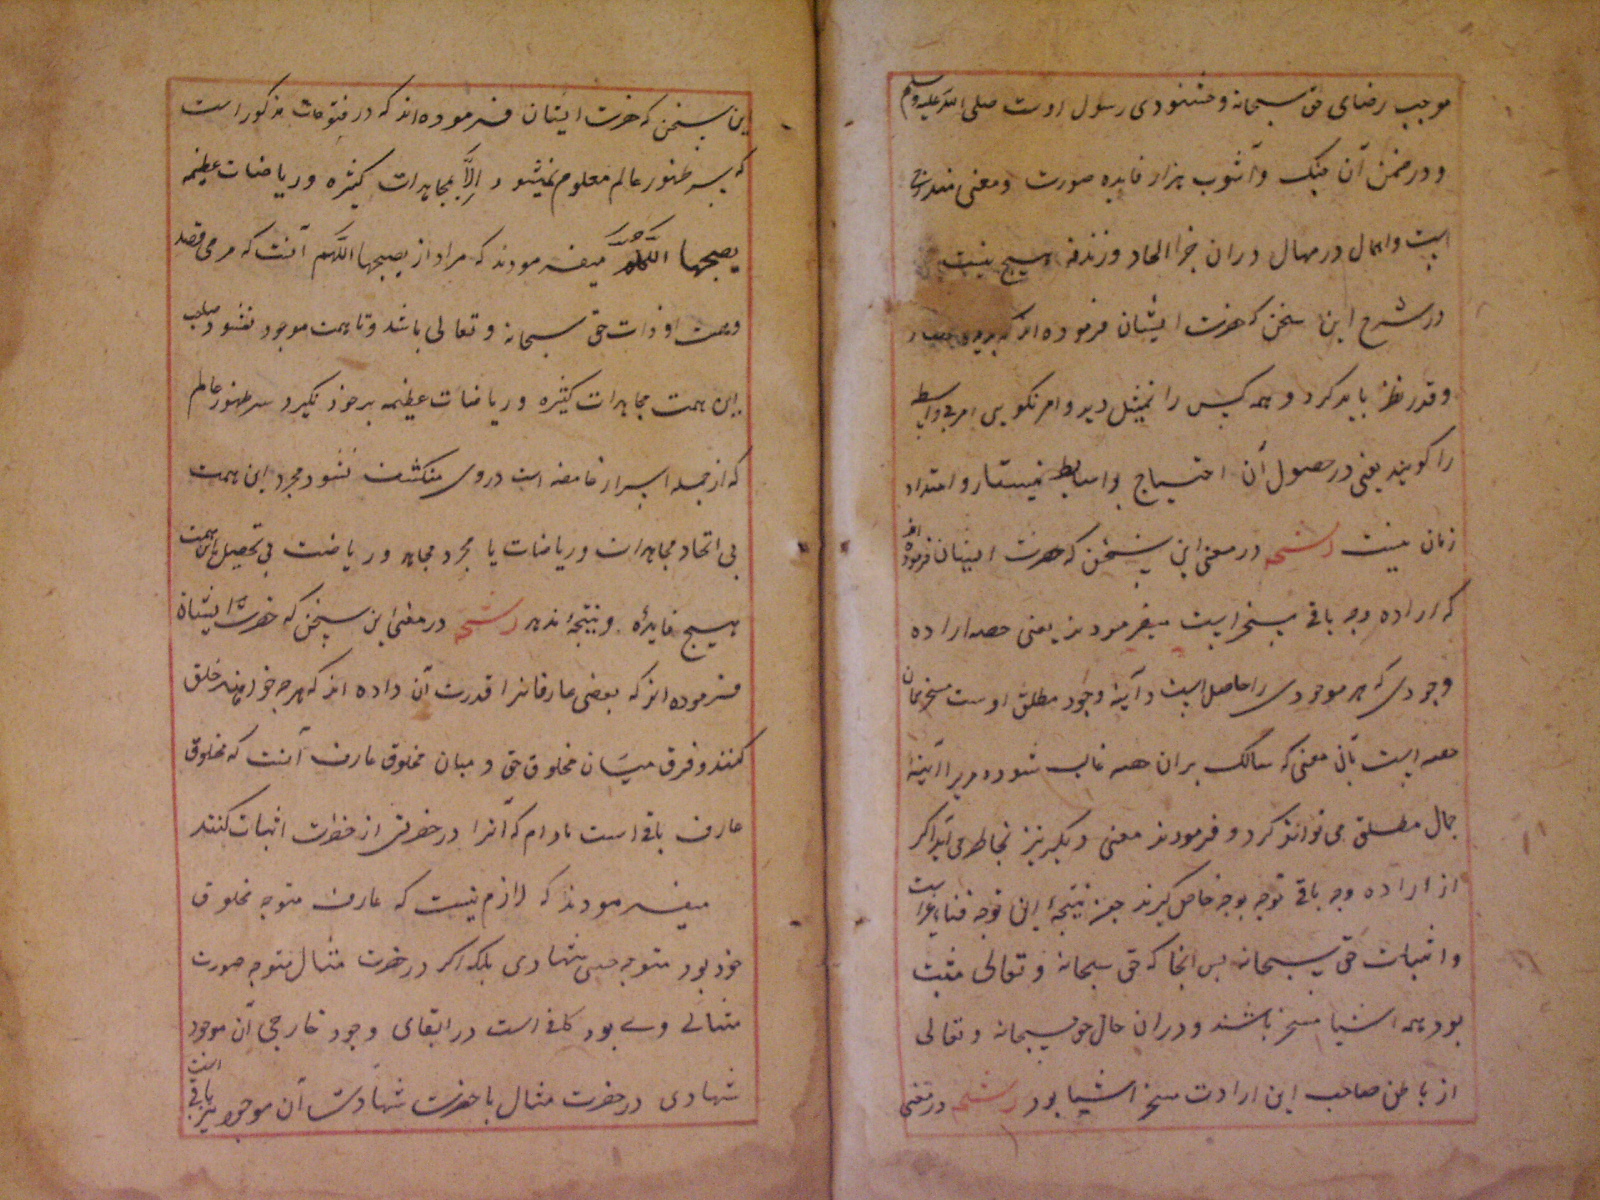 موجب رضای حق سبحانه و خشنودی رسول اوست صلی الله علیه وسلم
و در ضمن آن جنک و آشوب هزار فایده صورت و معنی مندرج
است و اهمال در مهال در ان جز الحاد و زندقه هیچ نیست
در شرح این سخن که حضرت ایشان فرموده اند که
و قدر نظر باید کرد و همه کس را دید و امر نکوین امر بی واسطه
را کویند یعنی در حصول آن احتیاج بواسطه نیست و امتداد
زمان نیست رشحه در معنی این سخن که حضرت ایشان فرموده اند
که اراده وجه باقی مسخر است میفرمودند یعنی حصه اراده
وجودی که هر موجودی را حاصل است و آینه وجود مطلق اوست مسخر همان
حصه است بآن معنی که سالک بران حصه غالب شود و مر ویرا آیینه
جمال مطلق می تواند کرد و فرمودند معنی دیکر نیز بخاطر می آید اکر
از اراده وجه باقی توجه بوجه خاص کیرند جز نتیجهٔ این توجه فنا غیر است
و اثبات حق سبحانه پس انجا که حق سبحانه و تعالی مثبت
بود همه اشیا مسخر باشند و دران حال حق سبحانه و تعالی
از باطن صاحب این ارادت مسخر اشیا بود رشحه در معنی
این سخن که حضرت ایشان فرموده اند که در فتوحات مذکور است
که سر ظهور عالم معلوم نمیشود اِلاَّ بمجاهدات کثیره و ریاضات عظیمه
یصحبها میفرمودند که مراد از یصحبها اللّهم آنست که مرمی قصد
و همت او ذات حق سبحانه و تعالی باشد و تا همت موجود نشود و صاحب
این همت مجاهدات کثیره و ریاضات عظیمه بر خود نکیرد سر ظهور عالم
که از جمله اسرار غامضه است در وی منکشف نشود و مجرد این همت
بی اتحاد مجاهدات و ریاضات یا مجرد مجاهده و ریاضت بی تحصیل این همت
هیچ فایدهٔ و نتیجهٔ ندهد رشحه در معنی این سخن که حضرت ایشان
فرموده اند که بعضی عارفانرا قدرت آن داده اند که هرچه خواهند خلق
کنند و فرق میان مخلوق حق و میان مخلوق عارف آنست که مخلوق
عارف باقی است مادام که آنرا در حضرتی از حضرات اثبات کنند
میفرمودند که لازم نیست که عارف متوجه مخلوق
خود بود متوجه حسی شهادی بلکه اکر در حضرت مثال متوجه صورت
مثالی وی بود کافی است در ابقای وجود خارجی آن موجود
شهادی در حضرت مثال با حضرت شهادت آن موجود نیز باقی است